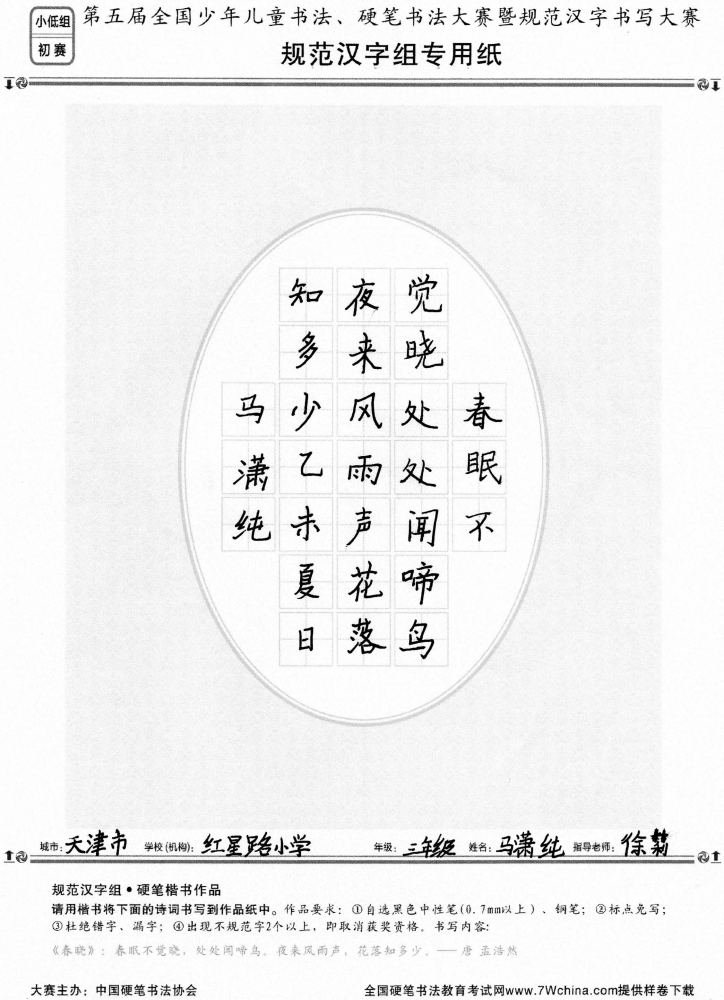 小低组
初赛
第五届全国少年儿童书法、硬笔书法大赛暨规范汉字书写大赛
规范汉字组专用纸
春眠不
觉晓处处闻啼鸟
夜来风雨声花落
知多少乙未夏日
马潇纯
城市：天津市 学校(机构)：红星路小学 年级：三年级 姓名：马潇纯 指导老师：徐
规范汉字组•硬笔楷书作品
请用楷书将下面的诗词书写到作品纸中。作品要求：①自选黑色中性笔(0.7mm以上)、钢笔；②标点免写；
③杜绝错字、漏字；④出现不规范字2个以上，即取消获奖资格。书写内容：
《春晓》：春眠不觉晓，处处闻啼鸟。夜来风雨声，花落知多少。——唐 孟浩然
大赛主办：中国硬笔书法协会
全国硬笔书法教育考试网www.7Wchina.com提供样卷下载